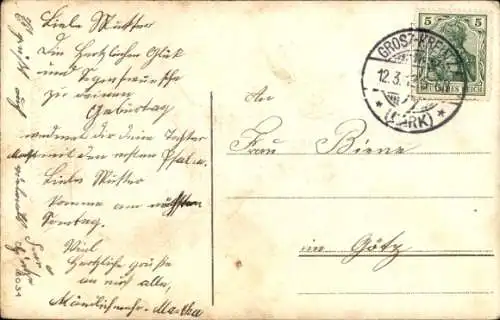 Liebe Mutter
Die Herzlichen Glück
und Segenswünsche
zu deinen
Geburtag
wedmet dir deine Tochter
mit den ersten
Liebe Mutter
komme am nächsten
Sonntag.
Viel
Herzliche grüße
an euch alle,
Mündlich mehr. Martha
Es grüßt auch
GROSZ-KREUTZ
12.3.
* (MARK) *
5 5
DEUTSCHES REICH
An
Frau Biene
in Götz